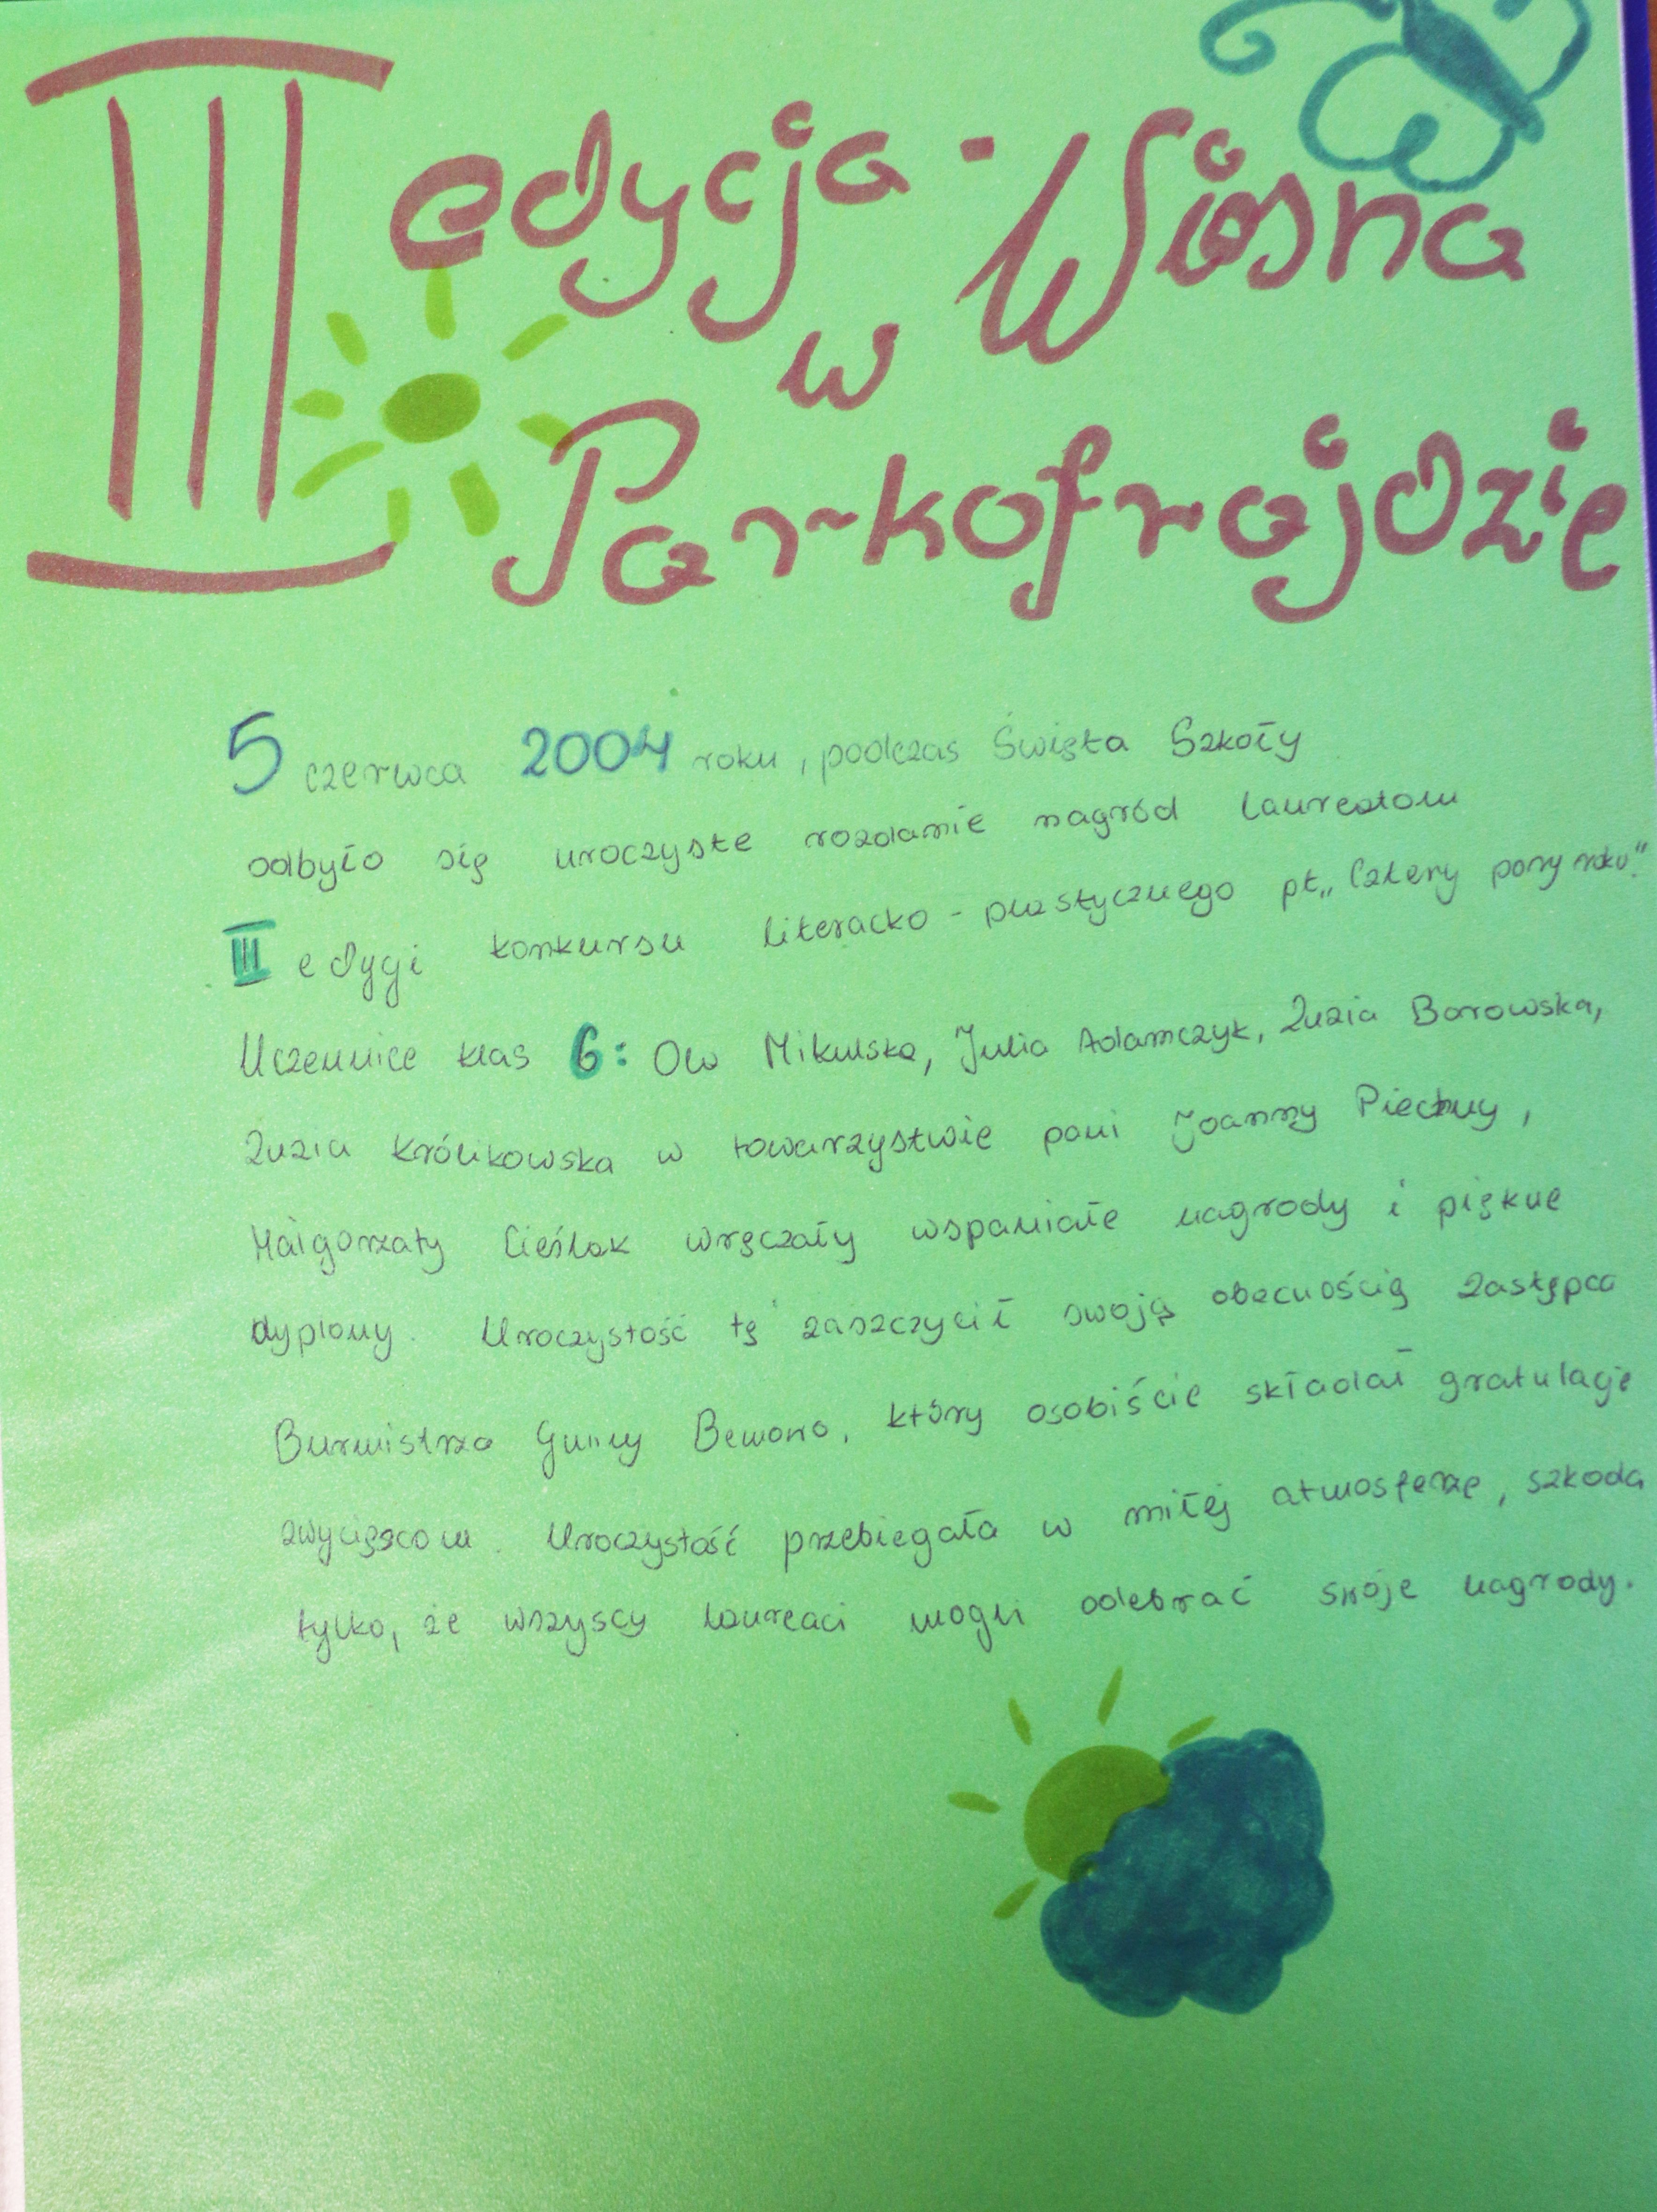 III edycja - Wiosna
w
Parkofrajdzie
5 czerwca 2004 roku, podczas Święta Szkoły
odbyło się uroczyste rozdanie nagród laureatom
III edycji konkursu literacko - plastycznego pt„ Cztery pory roku".
Uczennice klas 6: Ola Mikulska, Julia Adamczyk, Zuzia Borowska,
Zuzia Królikowska w towarzystwie pani Joanny Piechny,
Małgorzaty Cieślak wręczały wspaniałe nagrody i piękne
dyplomy. Uroczystość tę zaszczycił swoją obecnością zastępca
Burmistrza Gminy Bemowo, który osobiście składał gratulacje
zwycięzcom. Uroczystość przebiegała w miłej atmosferze, szkoda
tylko, że wszyscy laureaci mogli odebrać swoje nagrody.